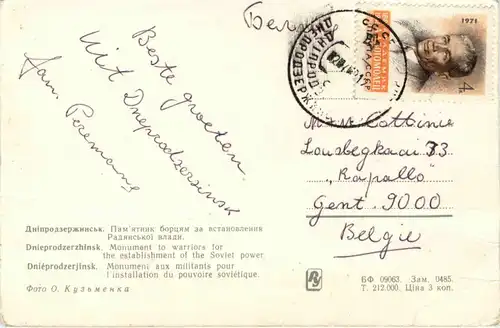 Бельгия
Beste groeten
uit Dneprodzersinsk
Fam. Peremans
1971
4к
ДНЕПРОДЗЕРЖИНСК
М + М Cottinie
Lousbegkaai 73
"Rapallo"
Gent. 9000
Belgie
Дніпродзержинськ. Пам'ятник борцям за встановлення
Радянської влади.
Dnieprodzerzhinsk. Monument to warriors for
the establishment of the Soviet power
Dniéprodzerjinsk. Monument aux militants pour
l'installation du pouvoire soviétique.
Фото О. Кузьменка
БФ 09063. Зам. 0485.
Т. 212.000. Ціна 3 коп.